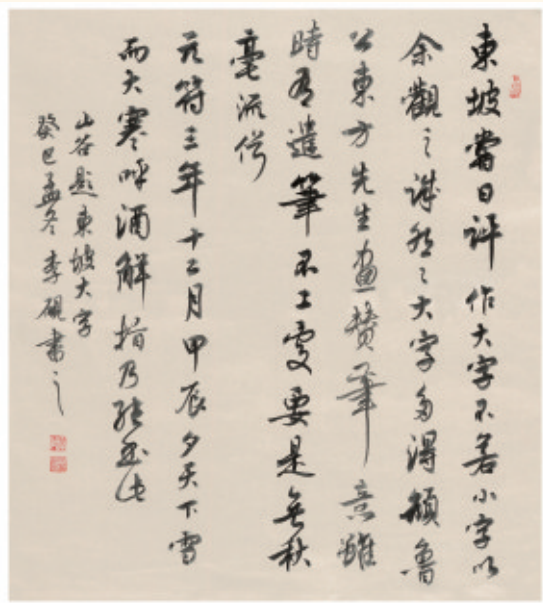 東坡嘗日評作大字不若小字以
余觀之誠然然大字多得顏魯
公東方先生畫贊筆意雖
時有遣筆不工處要是無秋
毫流俗
元符三年十二月甲辰夕天下雪
而大寒呼酒解指乃能書此
山谷題東坡大字
癸巳孟冬李硯書之